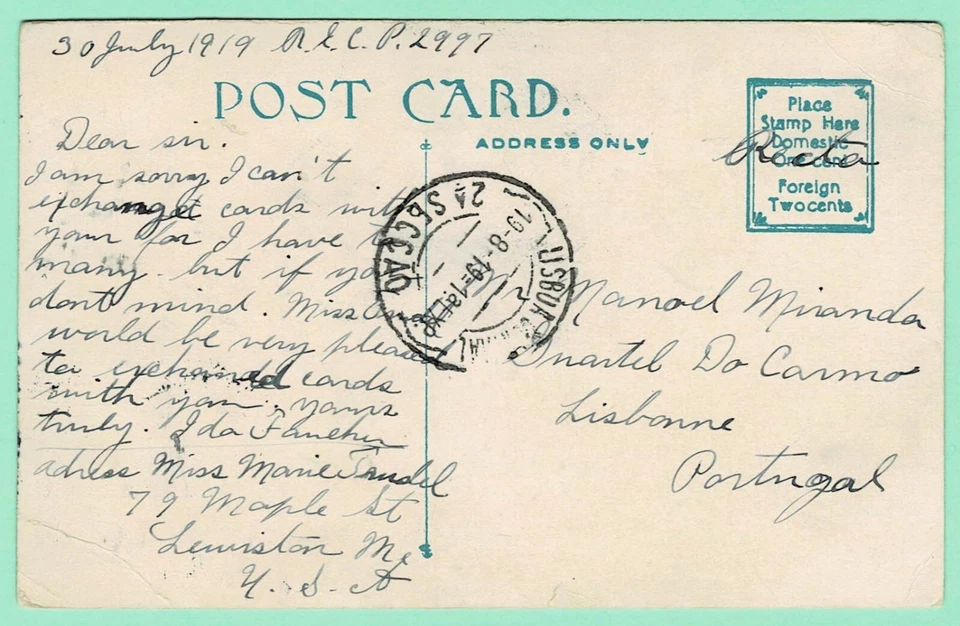 30 July 1919 R.E.C.P. 2997
POST CARD.
ADDRESS ONLY
Place
Stamp Here
Domestic
One cent
Foreign
Two cents
Recta
Dear sir.
I am sorry I can't
exchanget cards with
your for I have to
many. but if yo
dont mind. Miss
would be very please
to exchanded cards
with you. yours
truly. Ida Faucher
adress Miss Marie
79 Maple St
Lewiston Me
U. S. A
LISBOA CENTRAL
19-8-19
2A SECÇÃO
Mr Manoel Miranda
Quartel Do Carmo
Lisbonne
Portugal